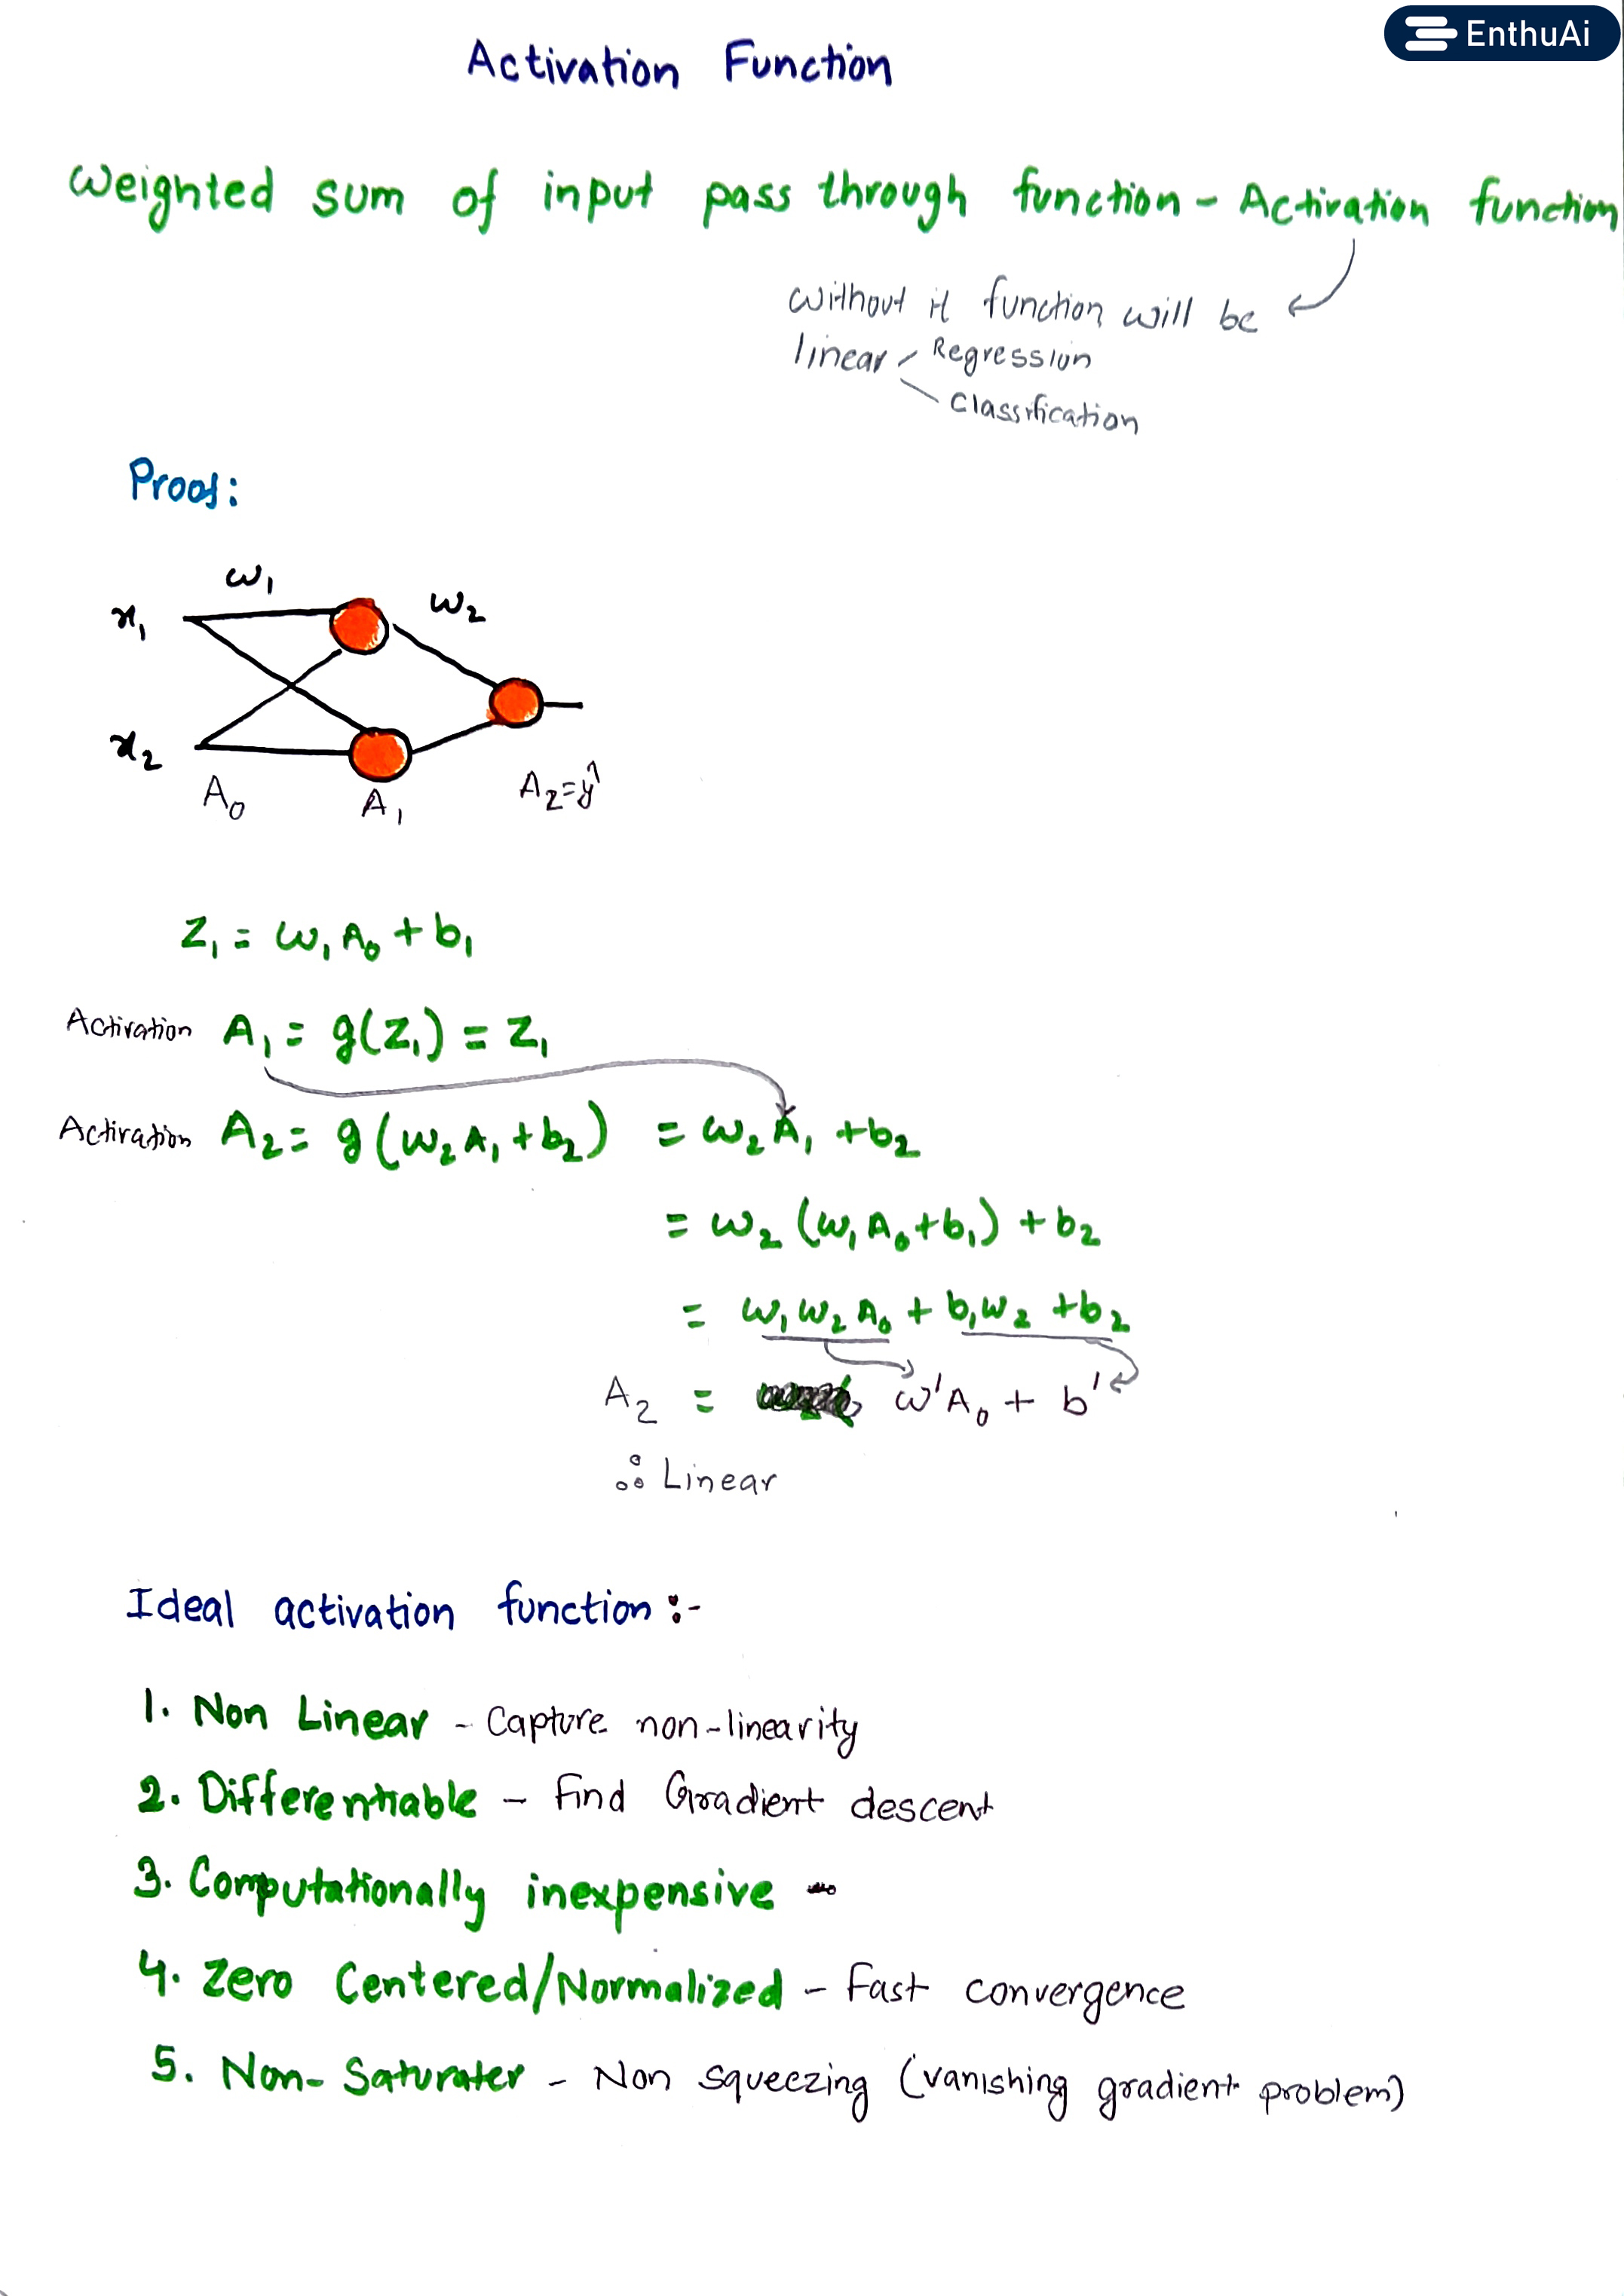 EnthuAi
Activation Function
Weighted sum of input pass through function - Activation function
Without it function will be
linear Regression
Classification
Proof:
ω₁
ω₂
x₁
x₂
A₀
A₁
A₂=ŷ
Z₁ = ω₁A₀ + b₁
Activation A₁ = g(Z₁) = Z₁
Activation A₂ = g(ω₂A₁ + b₂) = ω₂A₁ + b₂
= ω₂(ω₁A₀+b₁) + b₂
= ω₁ω₂A₀ + b₁ω₂ + b₂
A₂ = ω'A₀ + b'
∴ Linear
Ideal activation function :-
1. Non Linear - Capture non-linearity
2. Differentiable - Find Gradient descent
3. Computationally inexpensive -
4. Zero Centered/Normalized - Fast convergence
5. Non-Saturater - Non squeezing (vanishing gradient problem)